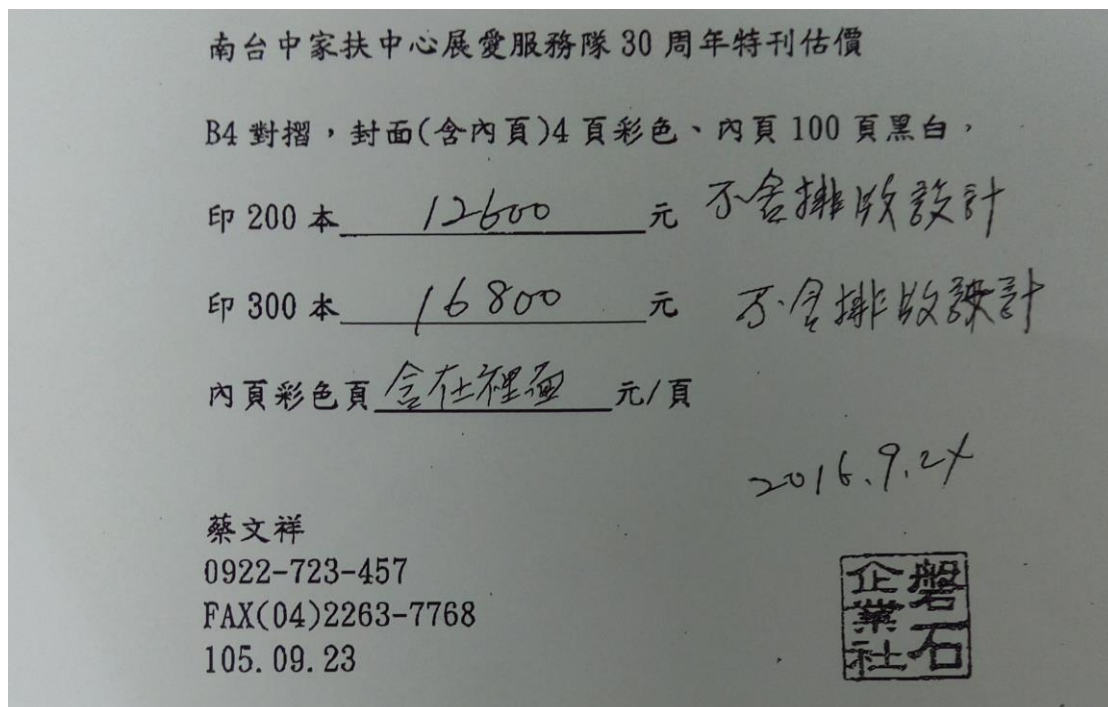 南台中家扶中心展愛服務隊 30 周年特刊估價
B4 對摺，封面(含內頁)4 頁彩色、內頁 100 頁黑白，
印 200 本 12600 元 不含排版設計
印 300 本 16800 元 不含排版設計
內頁彩色頁 含在裡面 元/頁
2016.9.24
蔡文祥
0922-723-457
FAX(04)2263-7768
105.09.23
磐石
企業社